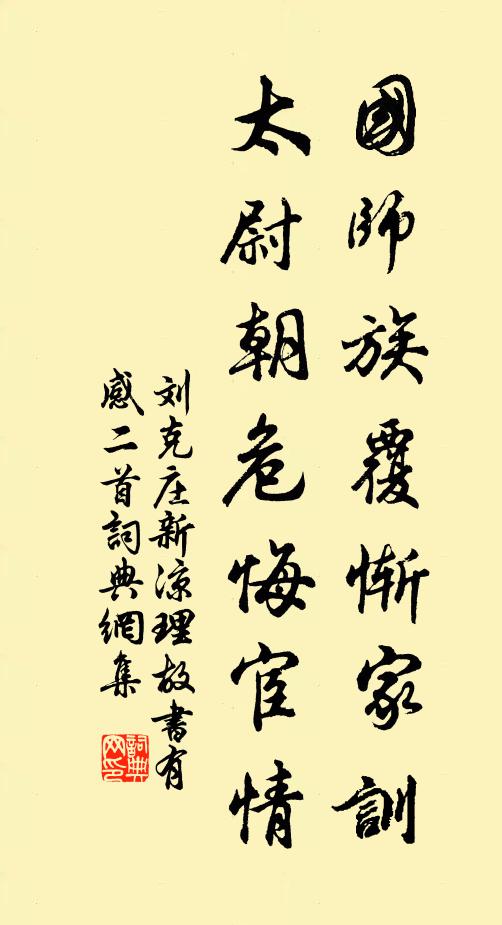 國師族覆慚家訓
太尉朝危悔宦情
刘克庄新凉理故書有
感二首詞典網集
詞典网印